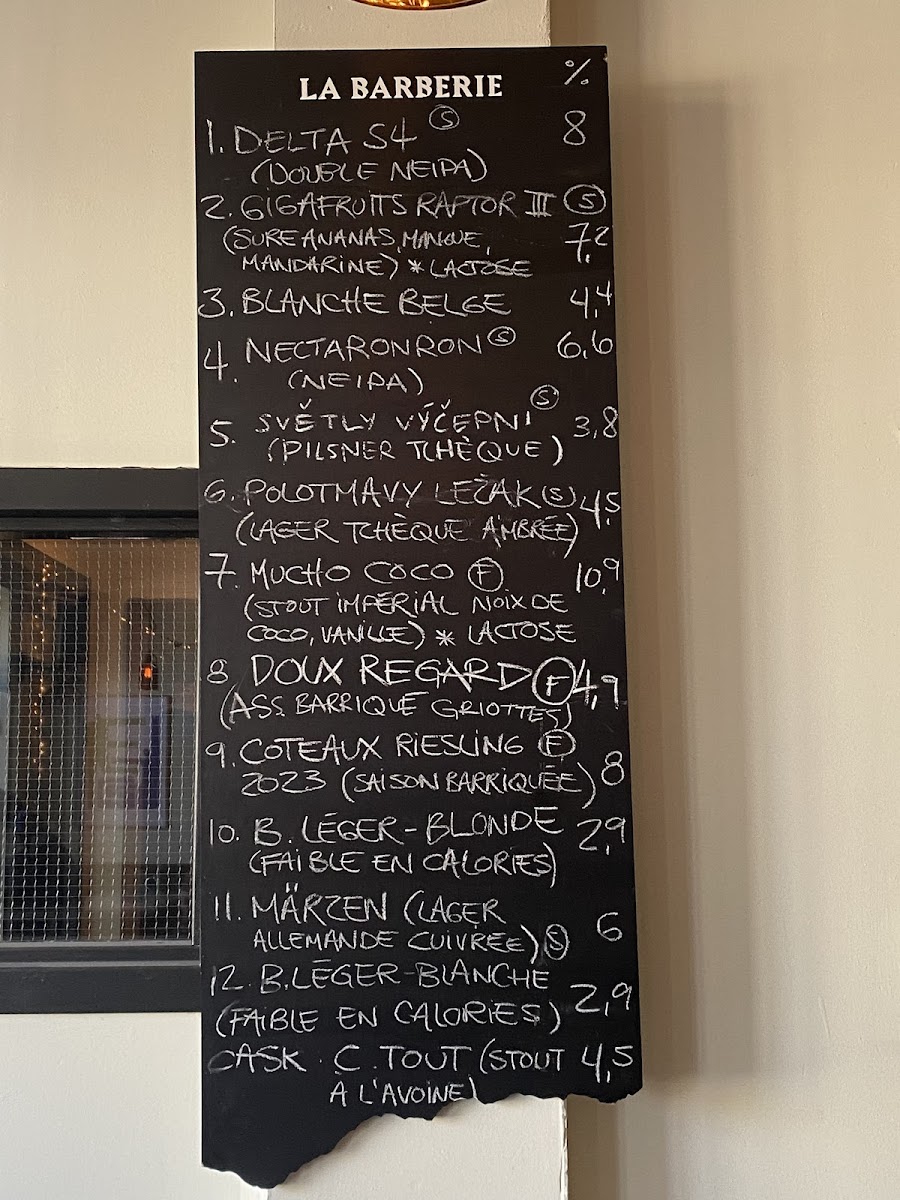 LA BARBERIE %
1. DELTA S4 (S) 8
(DOUBLE NEIPA)
2. GIGAFRUITS RAPTOR III (S)
(SURE ANANAS, MANGUE, 7,2
MANDARINE) * LACTOSE
3. BLANCHE BELGE 4,4
4. NECTARONRON (S) 6,6
(NEIPA)
5. SVĚTLY VÝČEPNÍ (S) 3,8
(PILSNER TCHÈQUE)
6. POLOTMAVY LEŽAK (S) 4,5
(LAGER TCHÈQUE AMBRÉE)
7. MUCHO COCO (F) 10,9
(STOUT IMPÉRIAL NOIX DE
COCO, VANILLE) * LACTOSE
8 DOUX REGARD (F) 4,9
(ASS. BARRIQUE GRIOTTES)
9. COTEAUX RIESLING (F)
2023 (SAISON BARRIQUÉE) 8
10. B. LÉGER-BLONDE 2,9
(FAIBLE EN CALORIES)
11. MÄRZEN (LAGER
ALLEMANDE CUIVRÉE) (S) 6
12. B. LÉGER-BLANCHE
(FAIBLE EN CALORIES) 2,9
CASK · C. TOUT (STOUT 4,5
A L'AVOINE)